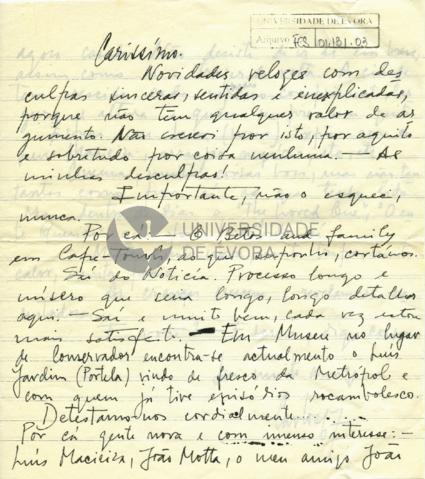 UNIVERSIDADE DE ÉVORA
Arquivo FCS 01.181.03
Caríssimo.
Novidades velozes com des
culpas sinceras, sentidas e inexplicadas,
porque não tem qualquer valor de ar
gumento. Não escrevi por isto, por aquilo
e sobretudo por coisa nenhuma. — As
minhas desculpas!
Importante, não o esqueci,
nunca.
Por cá: — O Beto and family
em Cape-Town, ao que suponho,
Saí do Notícia. Processo longo e
mísero que seria longo, longo detalhar
aqui. — Saí e muito bem, cada vez estou
mais satisfeito. — Em Museu no lugar
de conservador encontra-se actualmente o Luis
Jardim (Portela) vindo de fresco da Metrópol e
com quem já tive episódios rocambolesco.
Detestamo-nos cordialmente
Por cá gente nova e com imenso interesse: —
Luís Macieira, João Motta, o meu amigo João
UNIVERSIDADE
DE ÉVORA